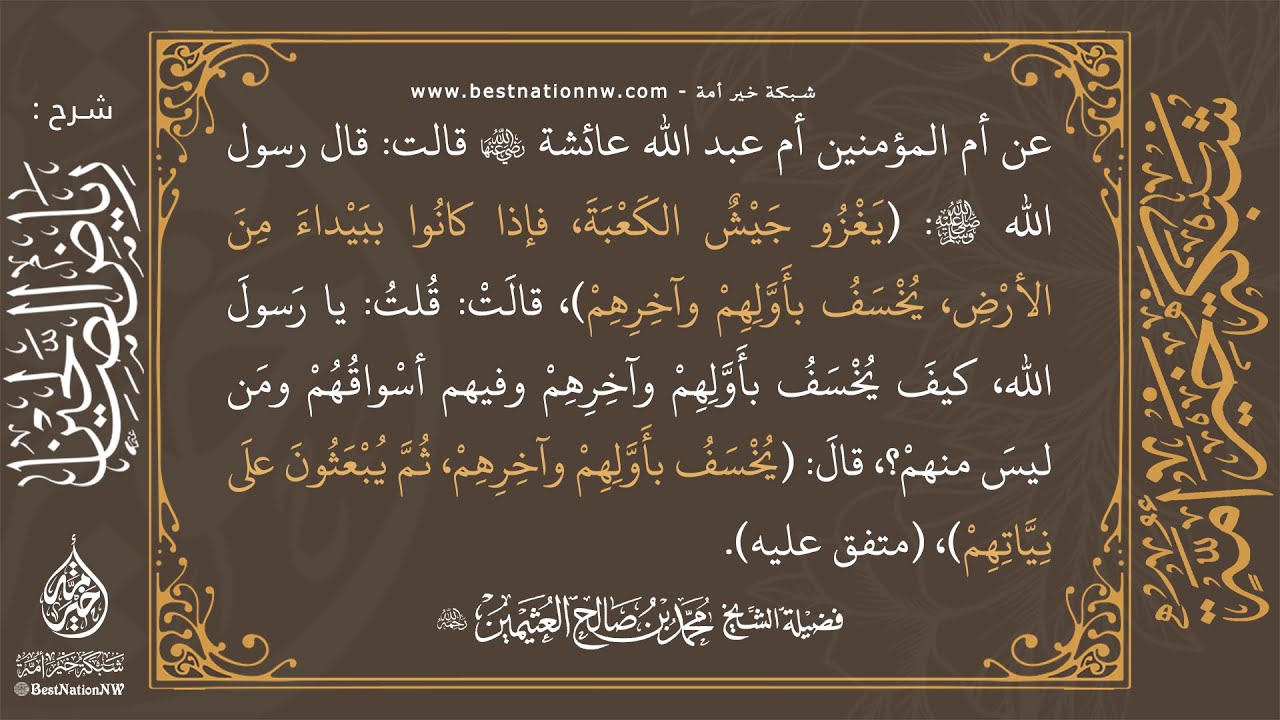 شبكة خير أمة - www.bestnationnw.com
عن أم المؤمنين أم عبد الله عائشة رضي الله عنها قالت: قال رسول
الله ﷺ: (يَغْزُو جَيْشٌ الكَعْبَةَ، فإذا كانُوا ببَيْداءَ مِنَ
الأرْضِ، يُخْسَفُ بأَوَّلِهِمْ وآخِرِهِمْ)، قالَتْ: قُلتُ: يا رَسولَ
الله، كيفَ يُخْسَفُ بأَوَّلِهِمْ وآخِرِهِمْ وفيهم أسْواقُهُمْ ومَن
ليسَ منهمْ؟، قالَ: (يُخْسَفُ بأَوَّلِهِمْ وآخِرِهِمْ، ثُمَّ يُبْعَثُونَ علَى
نِيَّاتِهِمْ)، (متفق عليه).
فضيلة الشيخ محمد بن صالح العثيمين رحمه الله
شبكة خير أمة
شرح :
رياض الصالحين
خير أمة
شبكة خير أمة
@BestNationNW